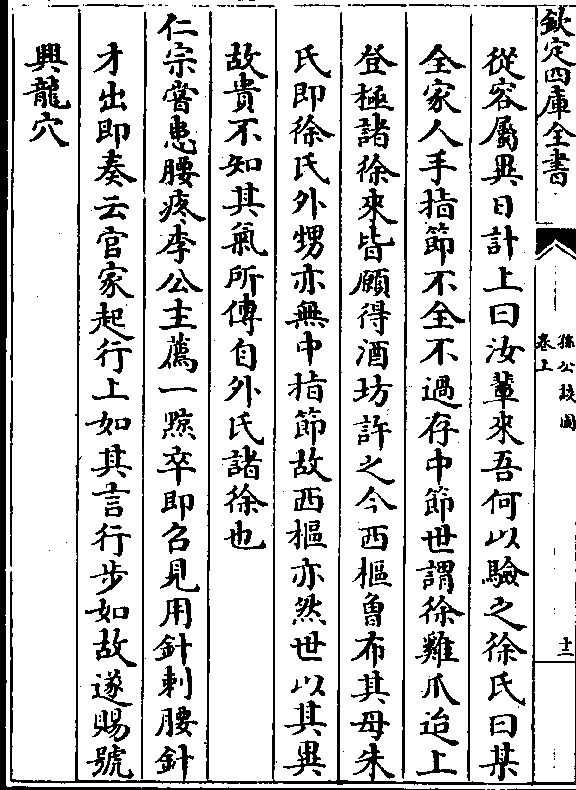 欽定四庫全書
孫公談圃
卷上
十二
從容屬異日計上曰汝輩來吾何以驗之徐氏曰某
全家人手指節不全不過存中節世謂徐雞爪迨上
登極諸徐來皆願得酒坊許之今西樞魯布其母朱
氏即徐氏外甥亦無中指節故西樞亦然世以其異
故貴不知其氣所傳自外氏諸徐也
仁宗嘗患腰疼李公主薦一黥卒即召見用針刺腰針
才出即奏云官家起行上如其言行步如故遂賜號
興龍穴